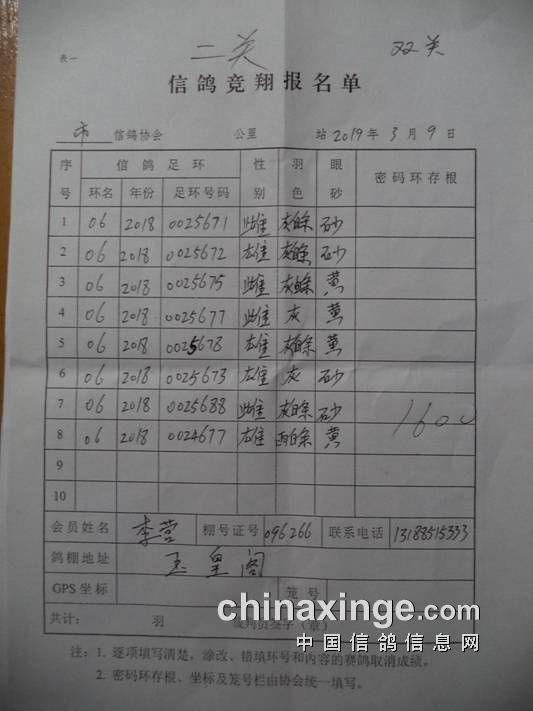 二关 双关
表一
信鸽竞翔报名单
市 信鸽协会 公里 站 2019年3月9日
序号 信鸽足环 性别 羽色 眼砂 密码环存根
环名 年份 足环号码
1 06 2018 0025671 雌 灰白条 砂
2 06 2018 0025672 雄 灰白条 砂
3 06 2018 0025675 雌 灰白条 黄
4 06 2018 0025677 雌 灰 黄
5 06 2018 0025678 雄 灰白条 黄
6 06 2018 0025673 雄 灰 砂
7 06 2018 0025688 雌 灰白条 砂 1600
8 06 2018 0024677 雄 白条 黄
9
10
会员姓名 李营 棚号证号 096266 联系电话 13188515333
鸽棚地址 玉皇阁
GPS坐标 笼号
共计: 羽 裁判员签字(章)
chinaxinge.com
中国信鸽信息网
注:1. 逐项填写清楚,涂改、错填环号和内容的赛鸽取消成绩。
2. 密码环存根、坐标及笼号栏由协会统一填写。